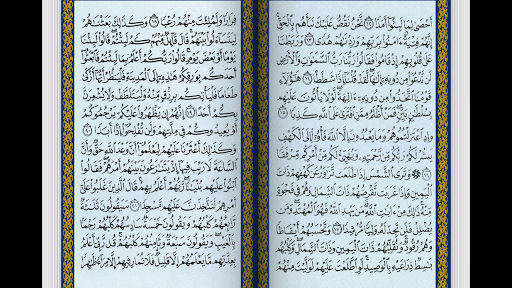 أَحْصَىٰ لِمَا لَبِثُوٓا۟ أَمَدًا ١٢ نَّحْنُ نَقُصُّ عَلَيْكَ نَبَأَهُم بِٱلْحَقِّ
إِنَّهُمْ فِتْيَةٌ ءَامَنُوا۟ بِرَبِّهِمْ وَزِدْنَـٰهُمْ هُدًى ١٣ وَرَبَطْنَا
عَلَىٰ قُلُوبِهِمْ إِذْ قَامُوا۟ فَقَالُوا۟ رَبُّنَا رَبُّ ٱلسَّمَـٰوَٰتِ وَٱلْأَرْضِ
لَن نَّدْعُوَا۟ مِن دُونِهِۦٓ إِلَـٰهًا لَّقَدْ قُلْنَآ إِذًا شَطَطًا ١٤ هَـٰٓؤُلَآءِ
قَوْمُنَا ٱتَّخَذُوا۟ مِن دُونِهِۦٓ ءَالِهَةً لَّوْلَا يَأْتُونَ عَلَيْهِم
بِسُلْطَـٰنٍۭ بَيِّنٍ فَمَنْ أَظْلَمُ مِمَّنِ ٱفْتَرَىٰ عَلَى ٱللَّهِ كَذِبًا ١٥
وَإِذِ ٱعْتَزَلْتُمُوهُمْ وَمَا يَعْبُدُونَ إِلَّا ٱللَّهَ فَأْوُۥٓا۟ إِلَى ٱلْكَهْفِ
يَنشُرْ لَكُمْ رَبُّكُم مِّن رَّحْمَتِهِۦ وَيُهَيِّئْ لَكُم مِّنْ أَمْرِكُم مِّرْفَقًا
١٦ وَتَرَى ٱلشَّمْسَ إِذَا طَلَعَت تَّزَٰوَرُ عَن كَهْفِهِمْ ذَاتَ
ٱلْيَمِينِ وَإِذَا غَرَبَت تَّقْرِضُهُمْ ذَاتَ ٱلشِّمَالِ وَهُمْ فِى فَجْوَةٍ
مِّنْهُ ذَٰلِكَ مِنْ ءَايَـٰتِ ٱللَّهِ مَن يَهْدِ ٱللَّهُ فَهُوَ ٱلْمُهْتَدِ وَمَن
يُضْلِلْ فَلَن تَجِدَ لَهُۥ وَلِيًّا مُّرْشِدًا ١٧ وَتَحْسَبُهُمْ أَيْقَاظًا
وَهُمْ رُقُودٌ وَنُقَلِّبُهُمْ ذَاتَ ٱلْيَمِينِ وَذَاتَ ٱلشِّمَالِ وَكَلْبُهُم
بَـٰسِطٌ ذِرَاعَيْهِ بِٱلْوَصِيدِ لَوِ ٱطَّلَعْتَ عَلَيْهِمْ لَوَلَّيْتَ مِنْهُمْ
فِرَارًا وَلَمُلِئْتَ مِنْهُمْ رُعْبًا ١٨ وَكَذَٰلِكَ بَعَثْنَـٰهُمْ
لِيَتَسَآءَلُوا۟ بَيْنَهُمْ قَالَ قَآئِلٌ مِّنْهُمْ كَمْ لَبِثْتُمْ قَالُوا۟ لَبِثْنَا
يَوْمًا أَوْ بَعْضَ يَوْمٍ قَالُوا۟ رَبُّكُمْ أَعْلَمُ بِمَا لَبِثْتُمْ فَٱبْعَثُوٓا۟
أَحَدَكُم بِوَرِقِكُمْ هَـٰذِهِۦٓ إِلَى ٱلْمَدِينَةِ فَلْيَنظُرْ أَيُّهَآ أَزْكَىٰ
طَعَامًا فَلْيَأْتِكُم بِرِزْقٍ مِّنْهُ وَلْيَتَلَطَّفْ وَلَا يُشْعِرَنَّ
بِكُمْ أَحَدًا ١٩ إِنَّهُمْ إِن يَظْهَرُوا۟ عَلَيْكُمْ يَرْجُمُوكُمْ
أَوْ يُعِيدُوكُمْ فِى مِلَّتِهِمْ وَلَن تُفْلِحُوٓا۟ إِذًا أَبَدًا ٢٠
وَكَذَٰلِكَ أَعْثَرْنَا عَلَيْهِمْ لِيَعْلَمُوٓا۟ أَنَّ وَعْدَ ٱللَّهِ حَقٌّ وَأَنَّ
ٱلسَّاعَةَ لَا رَيْبَ فِيهَآ إِذْ يَتَنَـٰزَعُونَ بَيْنَهُمْ أَمْرَهُمْ فَقَالُوا۟
ٱبْنُوا۟ عَلَيْهِم بُنْيَـٰنًا رَّبُّهُمْ أَعْلَمُ بِهِمْ قَالَ ٱلَّذِينَ غَلَبُوا۟ عَلَىٰٓ
أَمْرِهِمْ لَنَتَّخِذَنَّ عَلَيْهِم مَّسْجِدًا ٢١ سَيَقُولُونَ ثَلَـٰثَةٌ
رَّابِعُهُمْ كَلْبُهُمْ وَيَقُولُونَ خَمْسَةٌ سَادِسُهُمْ كَلْبُهُمْ رَجْمًۢا
بِٱلْغَيْبِ وَيَقُولُونَ سَبْعَةٌ وَثَامِنُهُمْ كَلْبُهُمْ قُل رَّبِّىٓ أَعْلَمُ
بِعِدَّتِهِم مَّا يَعْلَمُهُمْ إِلَّا قَلِيلٌ فَلَا تُمَارِ فِيهِمْ إِلَّا مِرَآءً ظَـٰهِرًا